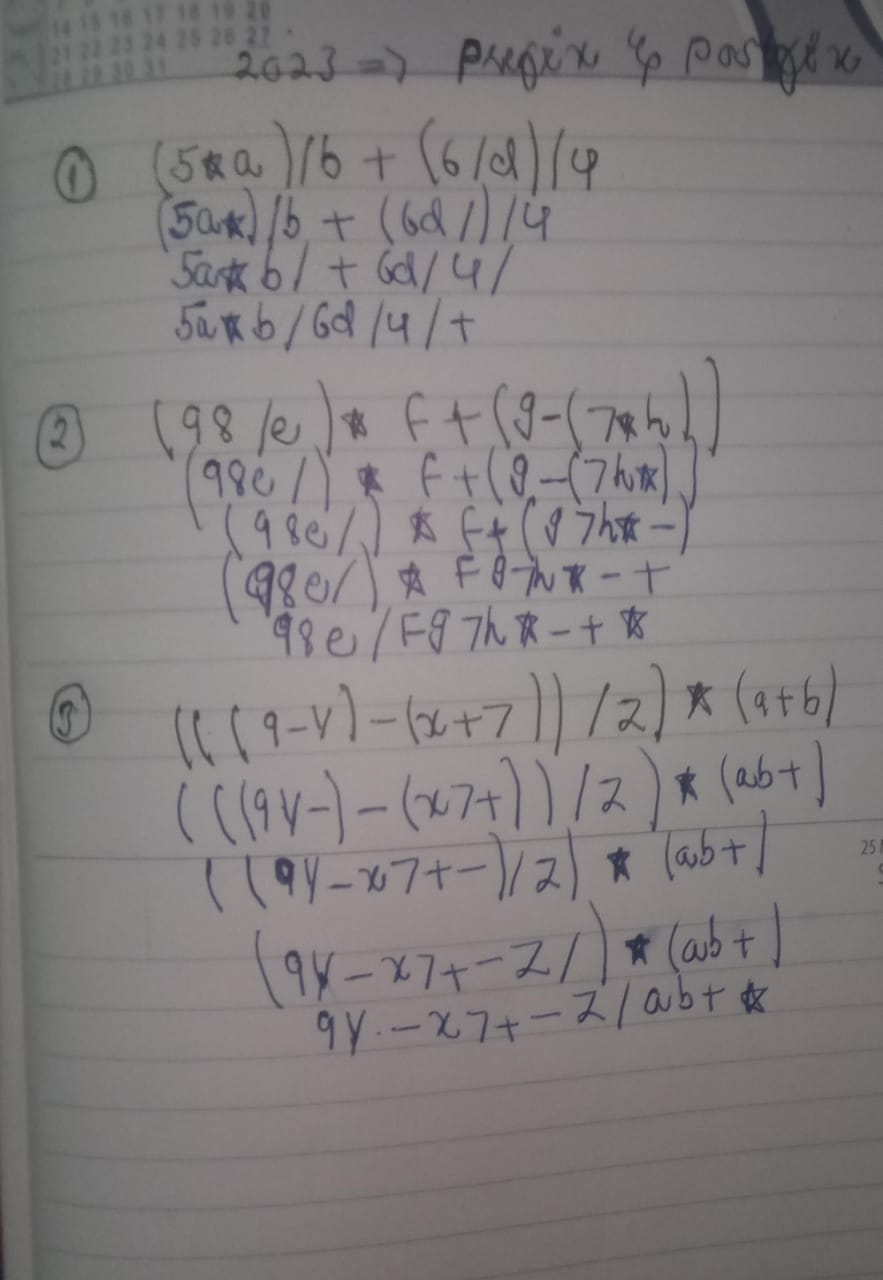 14 15 16 17 18 19 20
21 22 23 24 25 26 27
28 29 30 31
2023 => prefix & postfix
① (5*a)/b + (6/d)/4
(5a*)/b + (6d/)/4
5a*b/ + 6d/4/
5a*b/6d/4/+
② (98/e)* F+(g-(7*h))
(98e/) * F+(g-(7h*))
(98e/) * F+(g7h*-)
(98e/) * Fg7h*-+
98e/Fg7h*-+*
③ (((9-y)-(x+7))/z)*(a+b)
(((9y-)-(x7+))/z)*(ab+)
((9y-x7+-)/z)*(ab+)
(9y-x7+-z/)*(ab+)
9y-x7+-z/ab+*